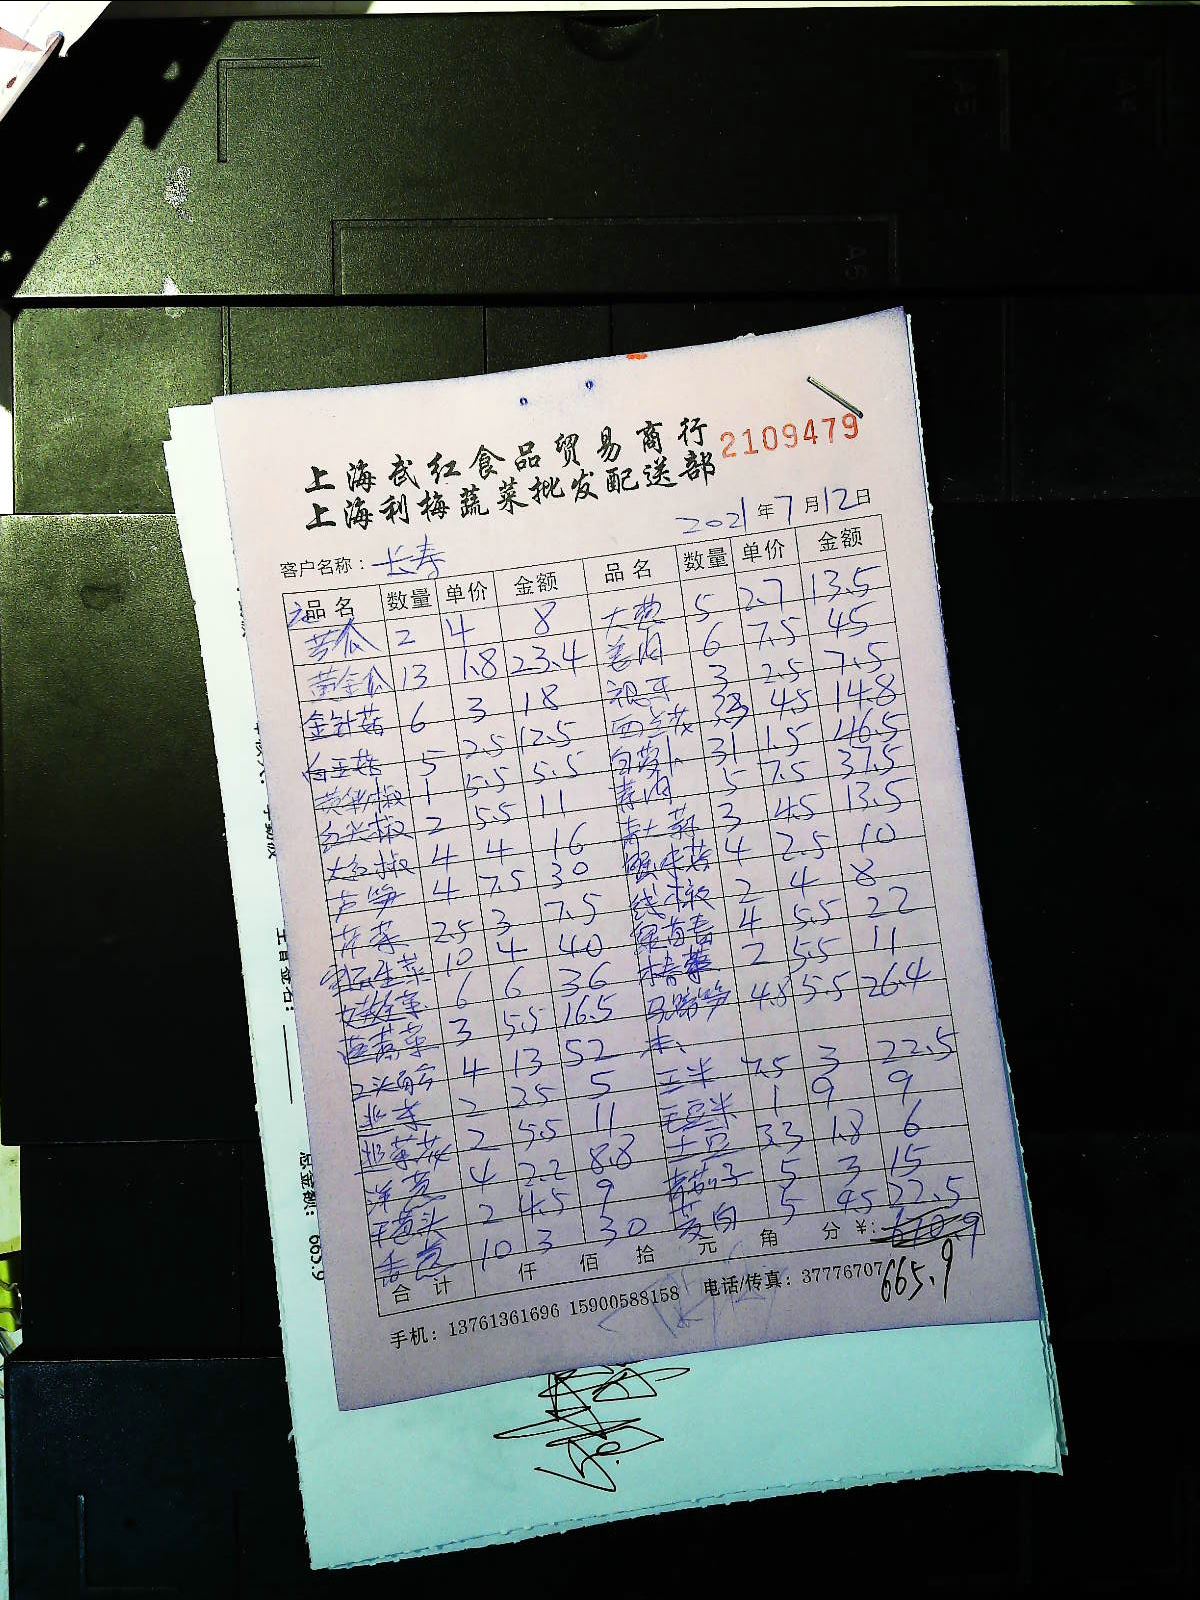 上海武红食品贸易商行
上海利梅蔬菜批发配送部
2109479
2021年7月12日
客户名称：长寿
品名 数量 单价 金额 品名 数量 单价 金额
苦瓜 2 4 8 大 5 2.7 13.5
黄金瓜 13 1.8 23.4 姜肉 6 7.5 45
金针菇 6 3 18 3 2.5 7.5
白玉菇 5 2.5 12.5 西兰花 3.3 4.5 14.8
黄尖椒 1 5.5 5.5 白萝卜 31 1.5 46.5
红尖椒 2 5.5 11 肉 5 7.5 37.5
大红椒 4 4 16 3 4.5 13.5
芦笋 4 7.5 30 4 2.5 10
芹菜 2.5 3 7.5 线椒 2 4 8
生菜 10 4 40 4 5.5 22
6 6 36 2 5.5 11
菜 3 5.5 16.5 马蹄笋 4.8 5.5 26.4
4 13 52
韭 2 2.5 5 玉米 7.5 3 22.5
韭菜花 2 5.5 11 毛豆米 1 9 9
洋葱 4 2.2 8.8 土豆 3.3 1.8 6
头 2 4.5 9 青茄子 5 3 15
10 3 30 茭白 5 4.5 22.5
合计 仟 佰 拾 元 角 分 ¥:
665.9
手机：13761361696 15900588158 电话/传真：37776707
总金额：665.9